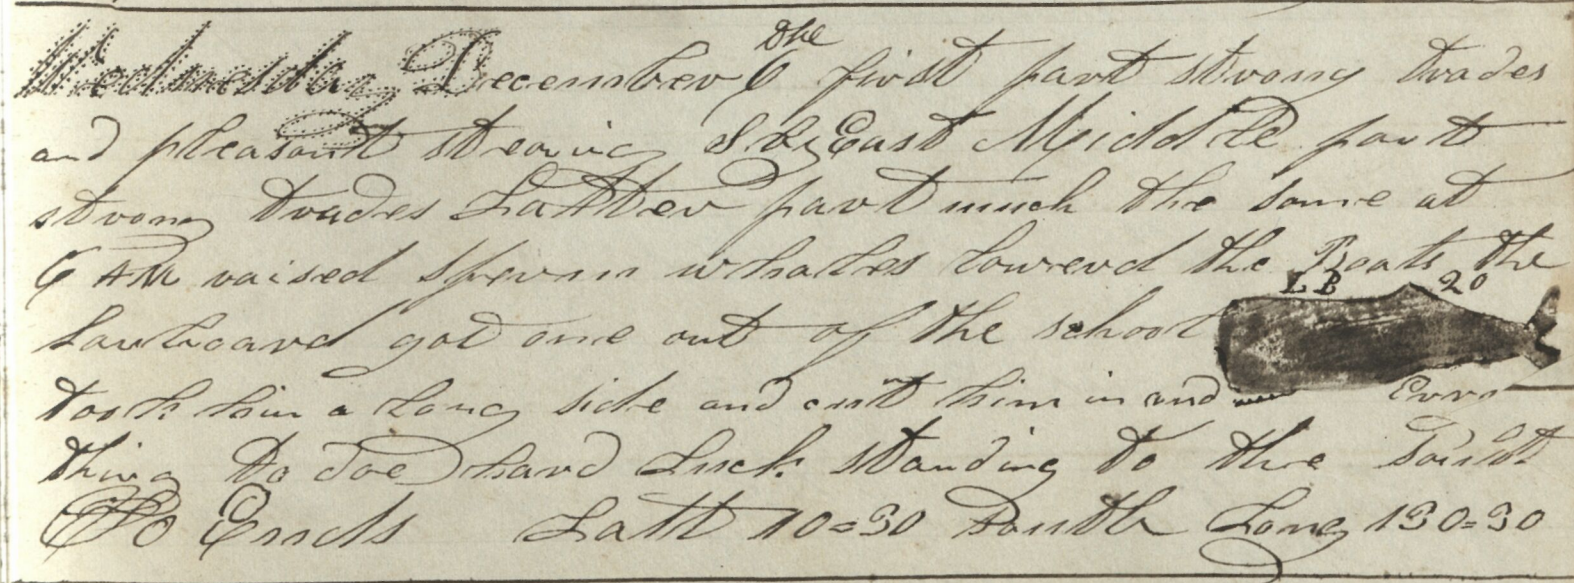 Wednesday December 6 the first part strong trades
and pleasant stearing S by East Middle part
strong trades Latter part much the same at
6 AM raised sperm whales lowerd the Boats the
LB 20
Larboard got one out of the school
took him a long side and cut him in and
thing to doe hard Luck standing to the South
So Ends Latt 10=30 South Long 130=30